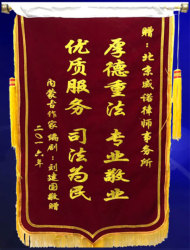 赠：北京威诺律师事务所
厚德重法 专业敬业
优质服务 司法为民
内蒙古作家编剧：刘建国敬赠
二〇一八年